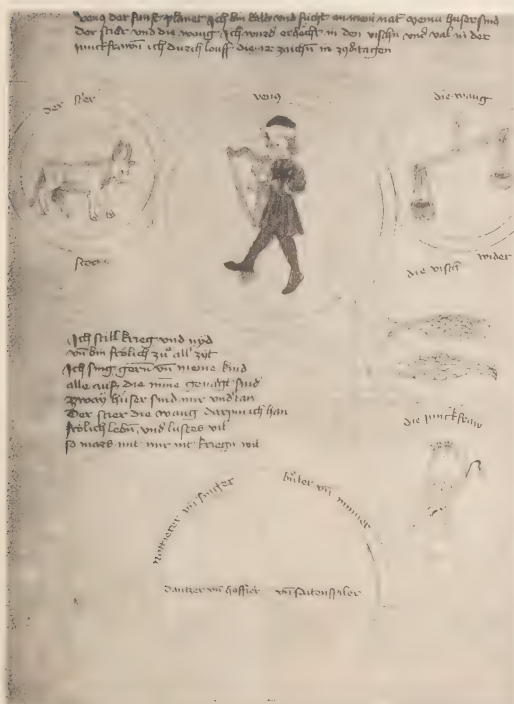 venq der funft planet Ich bin kald vnd fücht an mein nat Meniu hüser sind
der stier vnd die waug Ich wird erhöcht in den vischn vnd val in der
junckfrawn ich durch louff die 12 zaichn in tagen
der stier
venq
die waug
stier
die visch
wider
Ich still krieg vnd nyd
vn bin frölich zu all zyt
Ich sing gern vn meine kind
alle auf die mine genaigt sind
Zwaÿ hüser sind mir vndtan
Der stier die waug darjnn ich han
frölich lebn vnd lustes vil
so mars mit mir nit kriegn wil
die junckfraw
vn
büler vn
dantzer vn hoffier vn saitenspiler